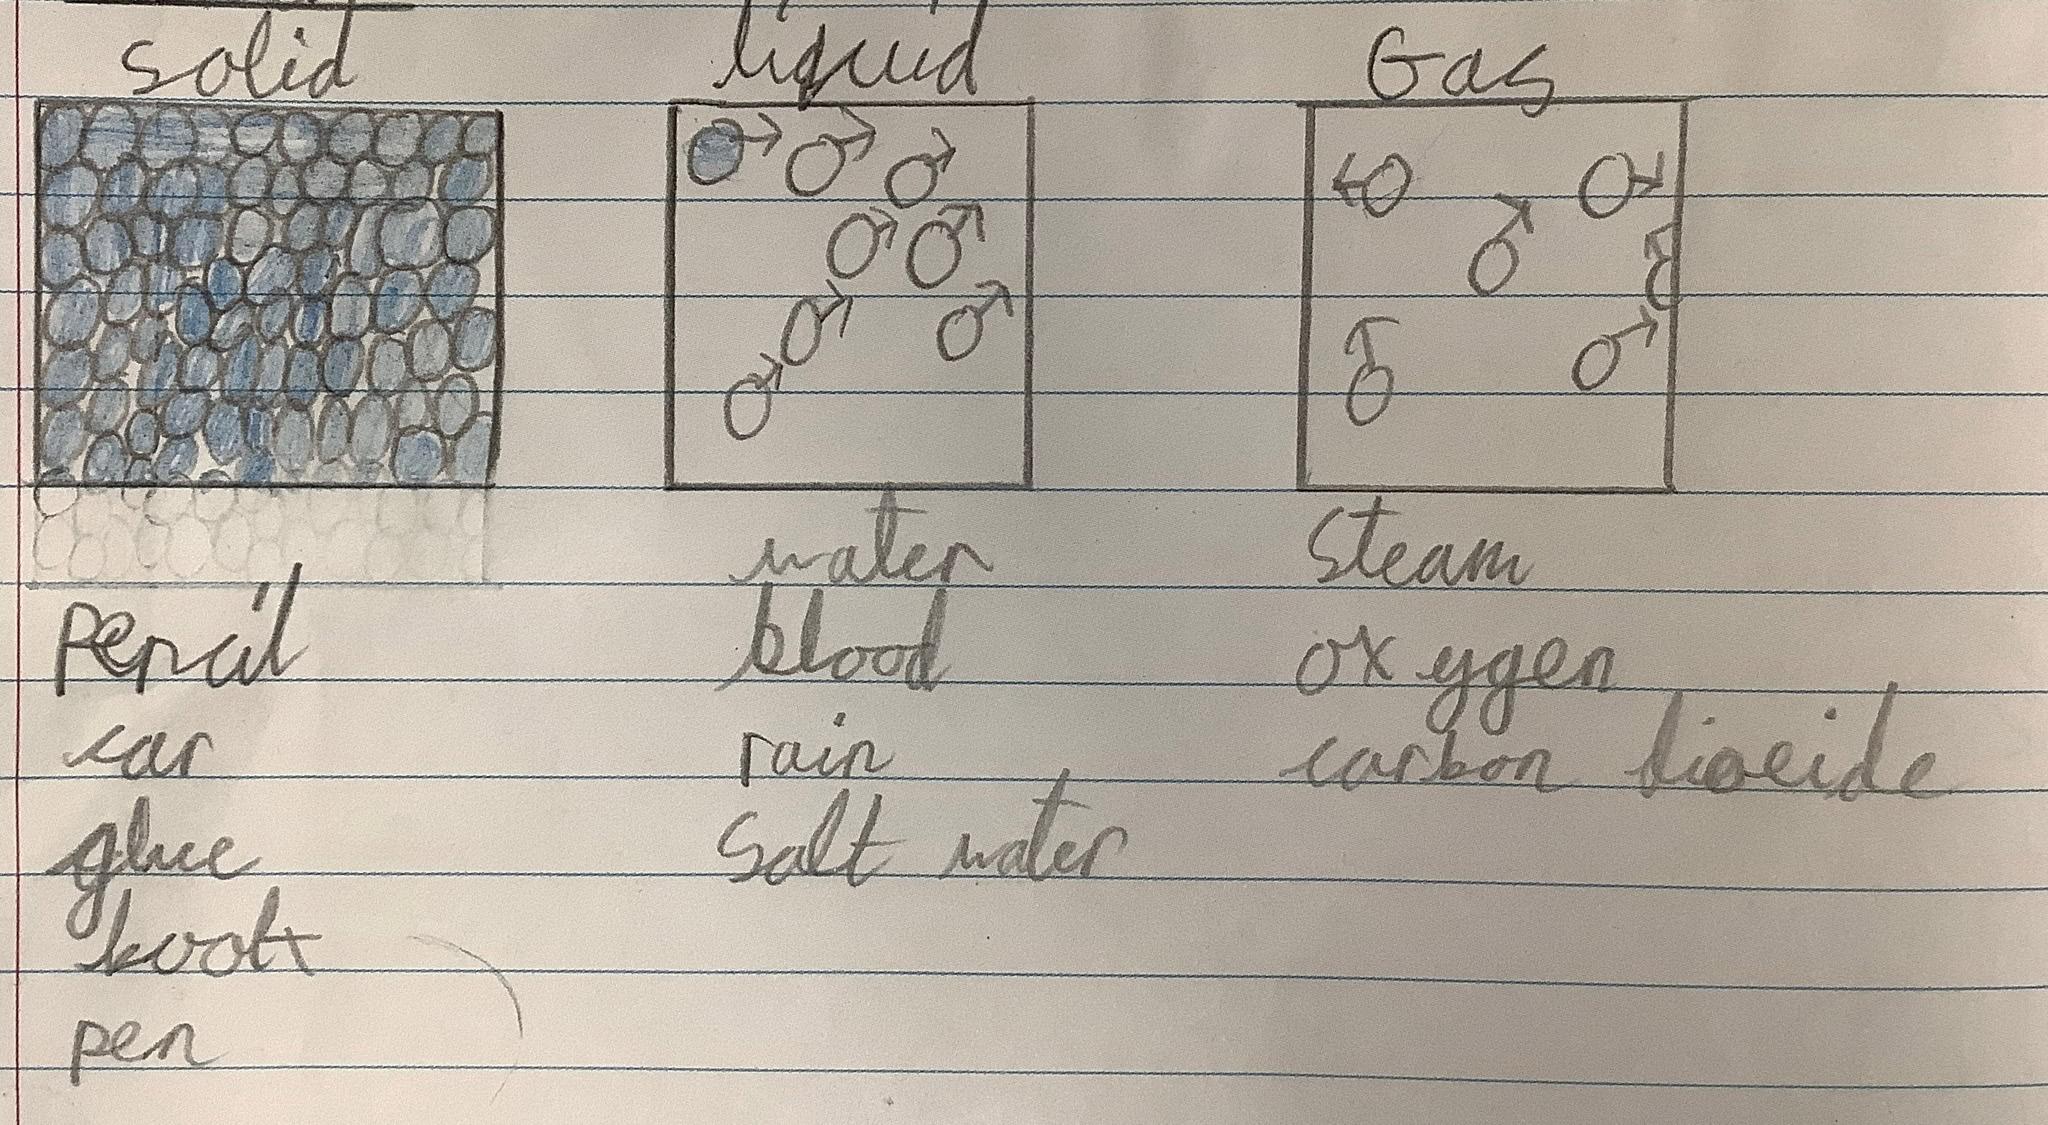 solid liquid Gas
water steam
Pencil blood oxygen
car rain carbon dioxide
glue salt water
book
pen